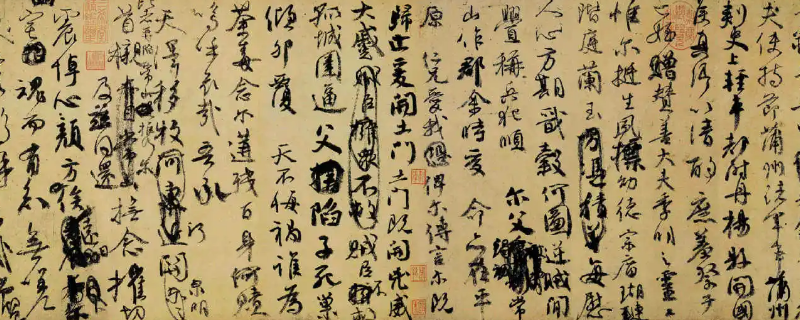 夫使持節蒲州諸軍事蒲州
刺史上輕車都尉丹楊縣開國
侯真卿以清酌庶羞祭于
亡姪贈贊善大夫季明之靈曰
惟爾挺生夙標幼德宗廟瑚璉
階庭蘭玉每慰
人心方期戩穀何圖逆賊閒
釁稱兵犯順爾父竭誠常
山作郡余時受命亦在平
原仁兄愛我俾爾傳言爾既
歸止爰開土門土門既開凶威
大蹙賊臣不
孤城圍逼父陷子死巢
傾卵覆天不悔禍誰為
荼毒念爾遘殘百身何贖
嗚乎哀哉吾承
天澤移牧河關泉明
比者再陷常山攜爾
首櫬及茲同還撫念摧切
震悼心顏方俟遠日
宅魂而有知無嗟